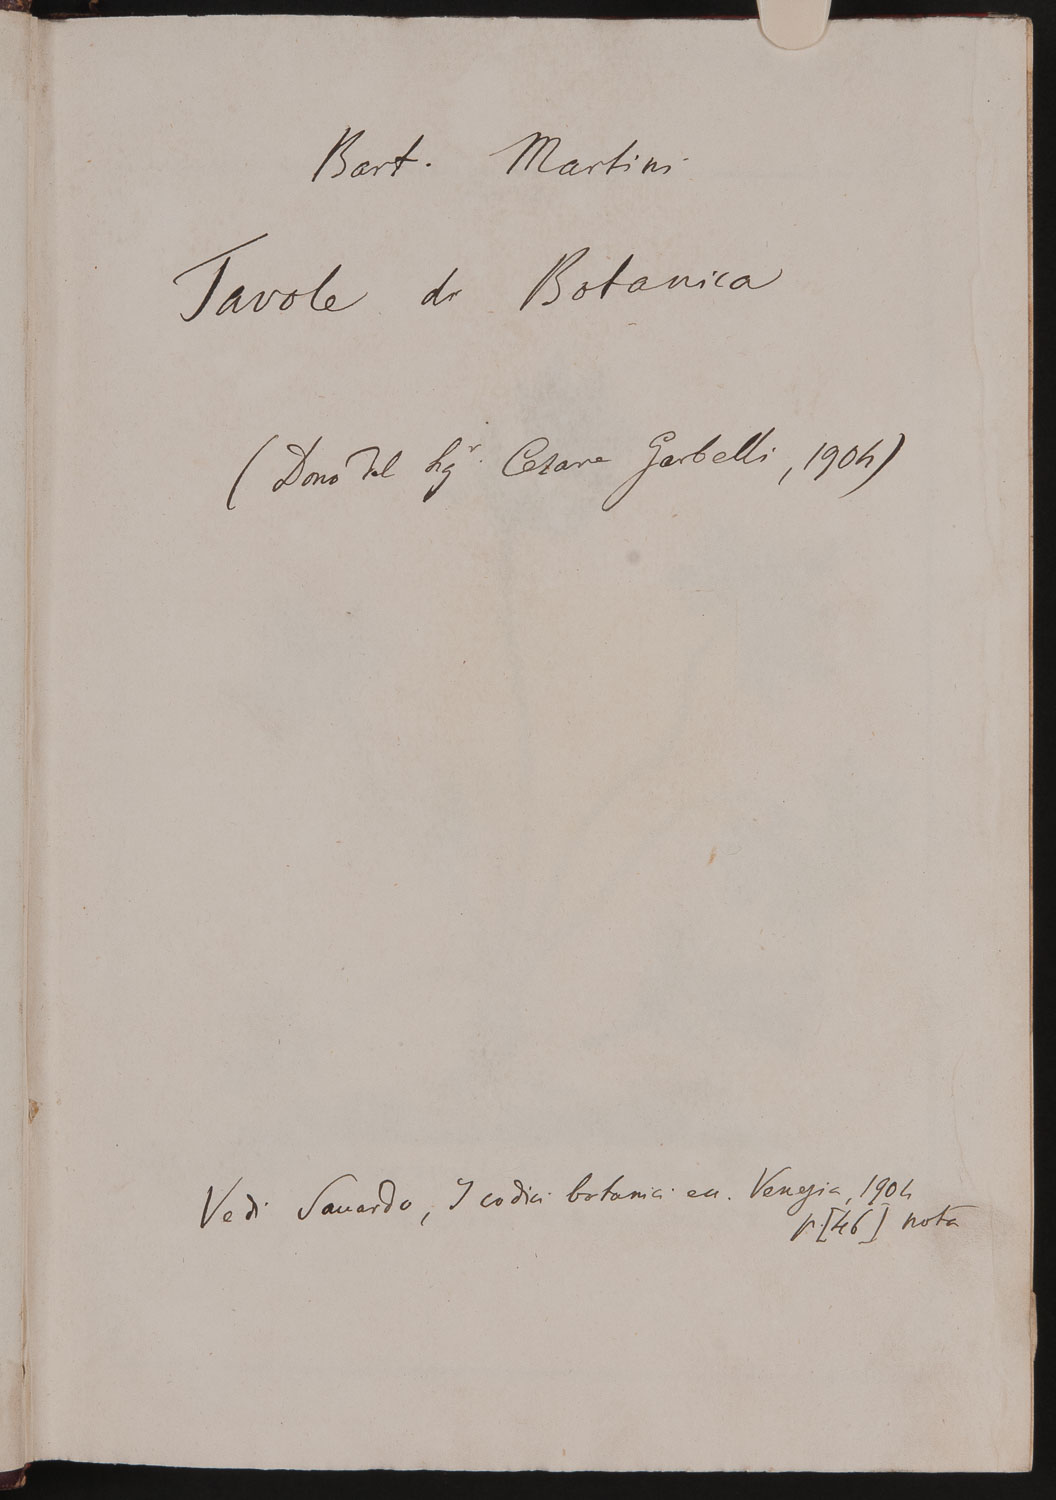 Bart. Martini
Tavole di Botanica
(Dono del Sigr. Cesare Garbelli, 1904)
Vedi Saccardo, I codici botanici ecc. Venezia, 1904
p. [46] nota